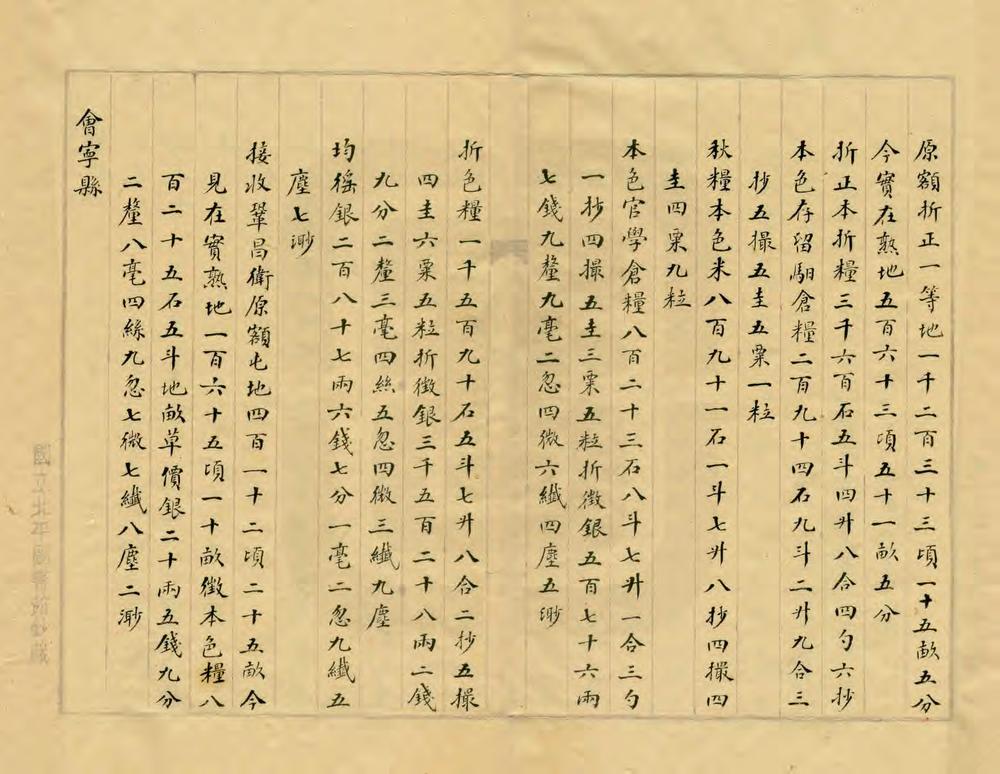 原額折正一等地一千二百三十三頃一十五畝五分
今實在熟地五百六十三頃五十一畝五分
折正本折糧三千六百石五斗四升八合四勺六抄
本色存留馹倉糧二百九十四石九斗二升九合三
抄五撮五圭五粟一粒
秋糧本色米八百九十一石一斗七升八抄四撮四
圭四粟九粒
本色官學倉糧八百二十三石八斗七升一合三勺
一抄四撮五圭三粟五粒折徵銀五百七十六兩
七錢九釐九毫二忽四微六纖四塵五渺
折色糧一千五百九十石五斗七升八合二抄五撮
四圭六粟五粒折徵銀三千五百二十八兩二錢
九分二釐三毫四絲五忽四微三纖九塵
均徭銀二百八十七兩六錢七分一毫二忽九纖五
塵七渺
接收鞏昌衛原額屯地四百一十二頃二十五畝今
見在實熟地一百六十五頃一十畝徵本色糧八
百二十五石五斗地畝草價銀二十兩五錢九分
二釐八毫四絲九忽七微七纖八塵二渺
會寧縣
國立北平圖書館鈔藏